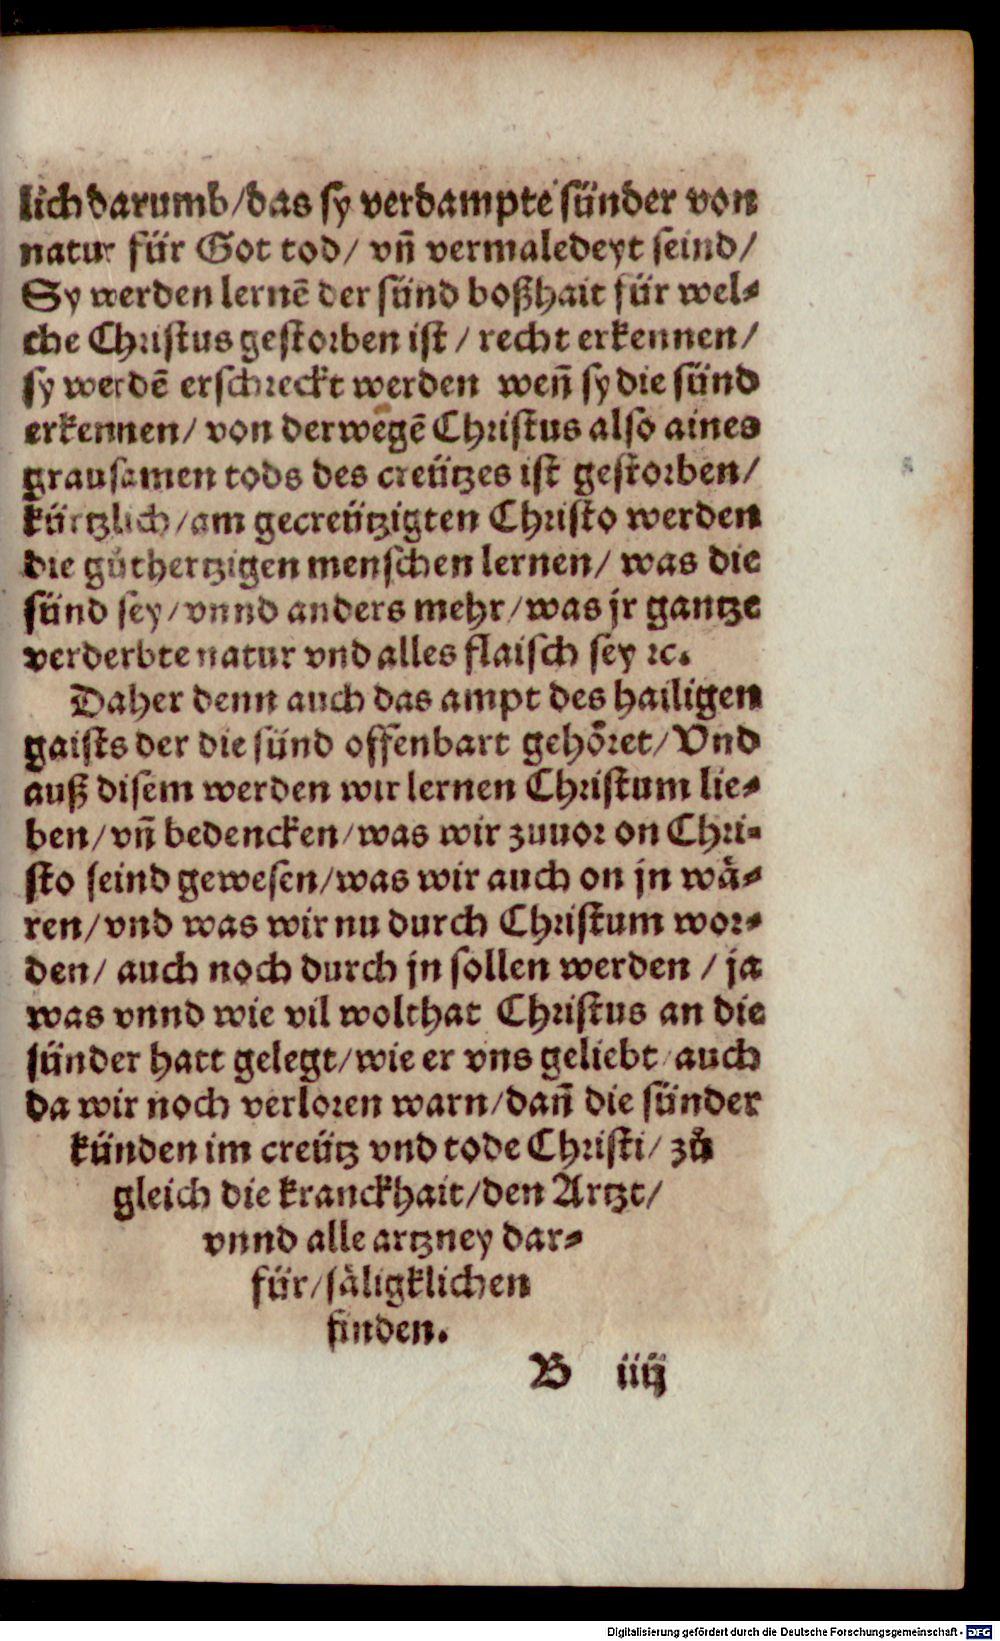 lich darumb/das sy verdampte sünder von
natur für Got tod/ vñ vermaledeyt seind/
Sy werden lernē der sünd boßhait für wel⸗
che Christus gestorben ist / recht erkennen/
sy werdē erschreckt werden weñ sy die sünd
erkennen/ von derwegē Christus also aines
grausamen tods des creützes ist gestorben/
kürtzlich/am gecreützigten Christo werden
die gůthertzigen menschen lernen/ was die
sünd sey/vnnd anders mehr/was jr gantze
verderbte natur vnd alles flaisch sey ꝛc.
Daher denn auch das ampt des hailigen
gaists der die sünd offenbart gehöret/Vnd
auß disem werden wir lernen Christum lie⸗
ben/vñ bedencken/was wir zuuor on Chri⸗
sto seind gewesen/was wir auch on jn wä⸗
ren/vnd was wir nu durch Christum wor⸗
den/ auch noch durch jn sollen werden / ja
was vnnd wie vil wolthat Christus an die
sünder hatt gelegt/wie er vns geliebt/auch
da wir noch verloren warn/dañ die sünder
künden im creütz vnd tode Christi/ zů
gleich die kranckhait/den Artzt/
vnnd alle artzney dar⸗
für/säligklichen
finden.
B iiij
Digitalisierung gefördert durch die Deutsche Forschungsgemeinschaft - DFG